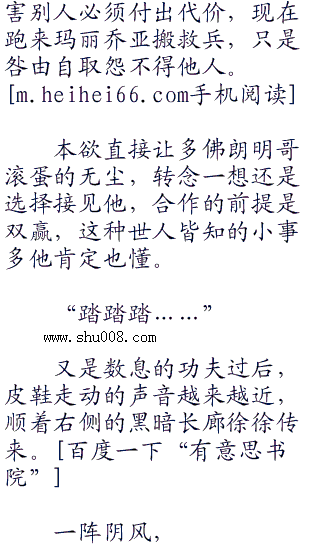 害别人必须付出代价，现在
跑来玛丽乔亚搬救兵，只是
咎由自取怨不得他人。
[m.heihei66.com手机阅读]
本欲直接让多佛朗明哥
滚蛋的无尘，转念一想还是
选择接见他，合作的前提是
双赢，这种世人皆知的小事
多他肯定也懂。
“踏踏踏……”
www.shu008.com
又是数息的功夫过后，
皮鞋走动的声音越来越近，
顺着右侧的黑暗长廊徐徐传
来。[百度一下“有意思书
院”]
一阵阴风，